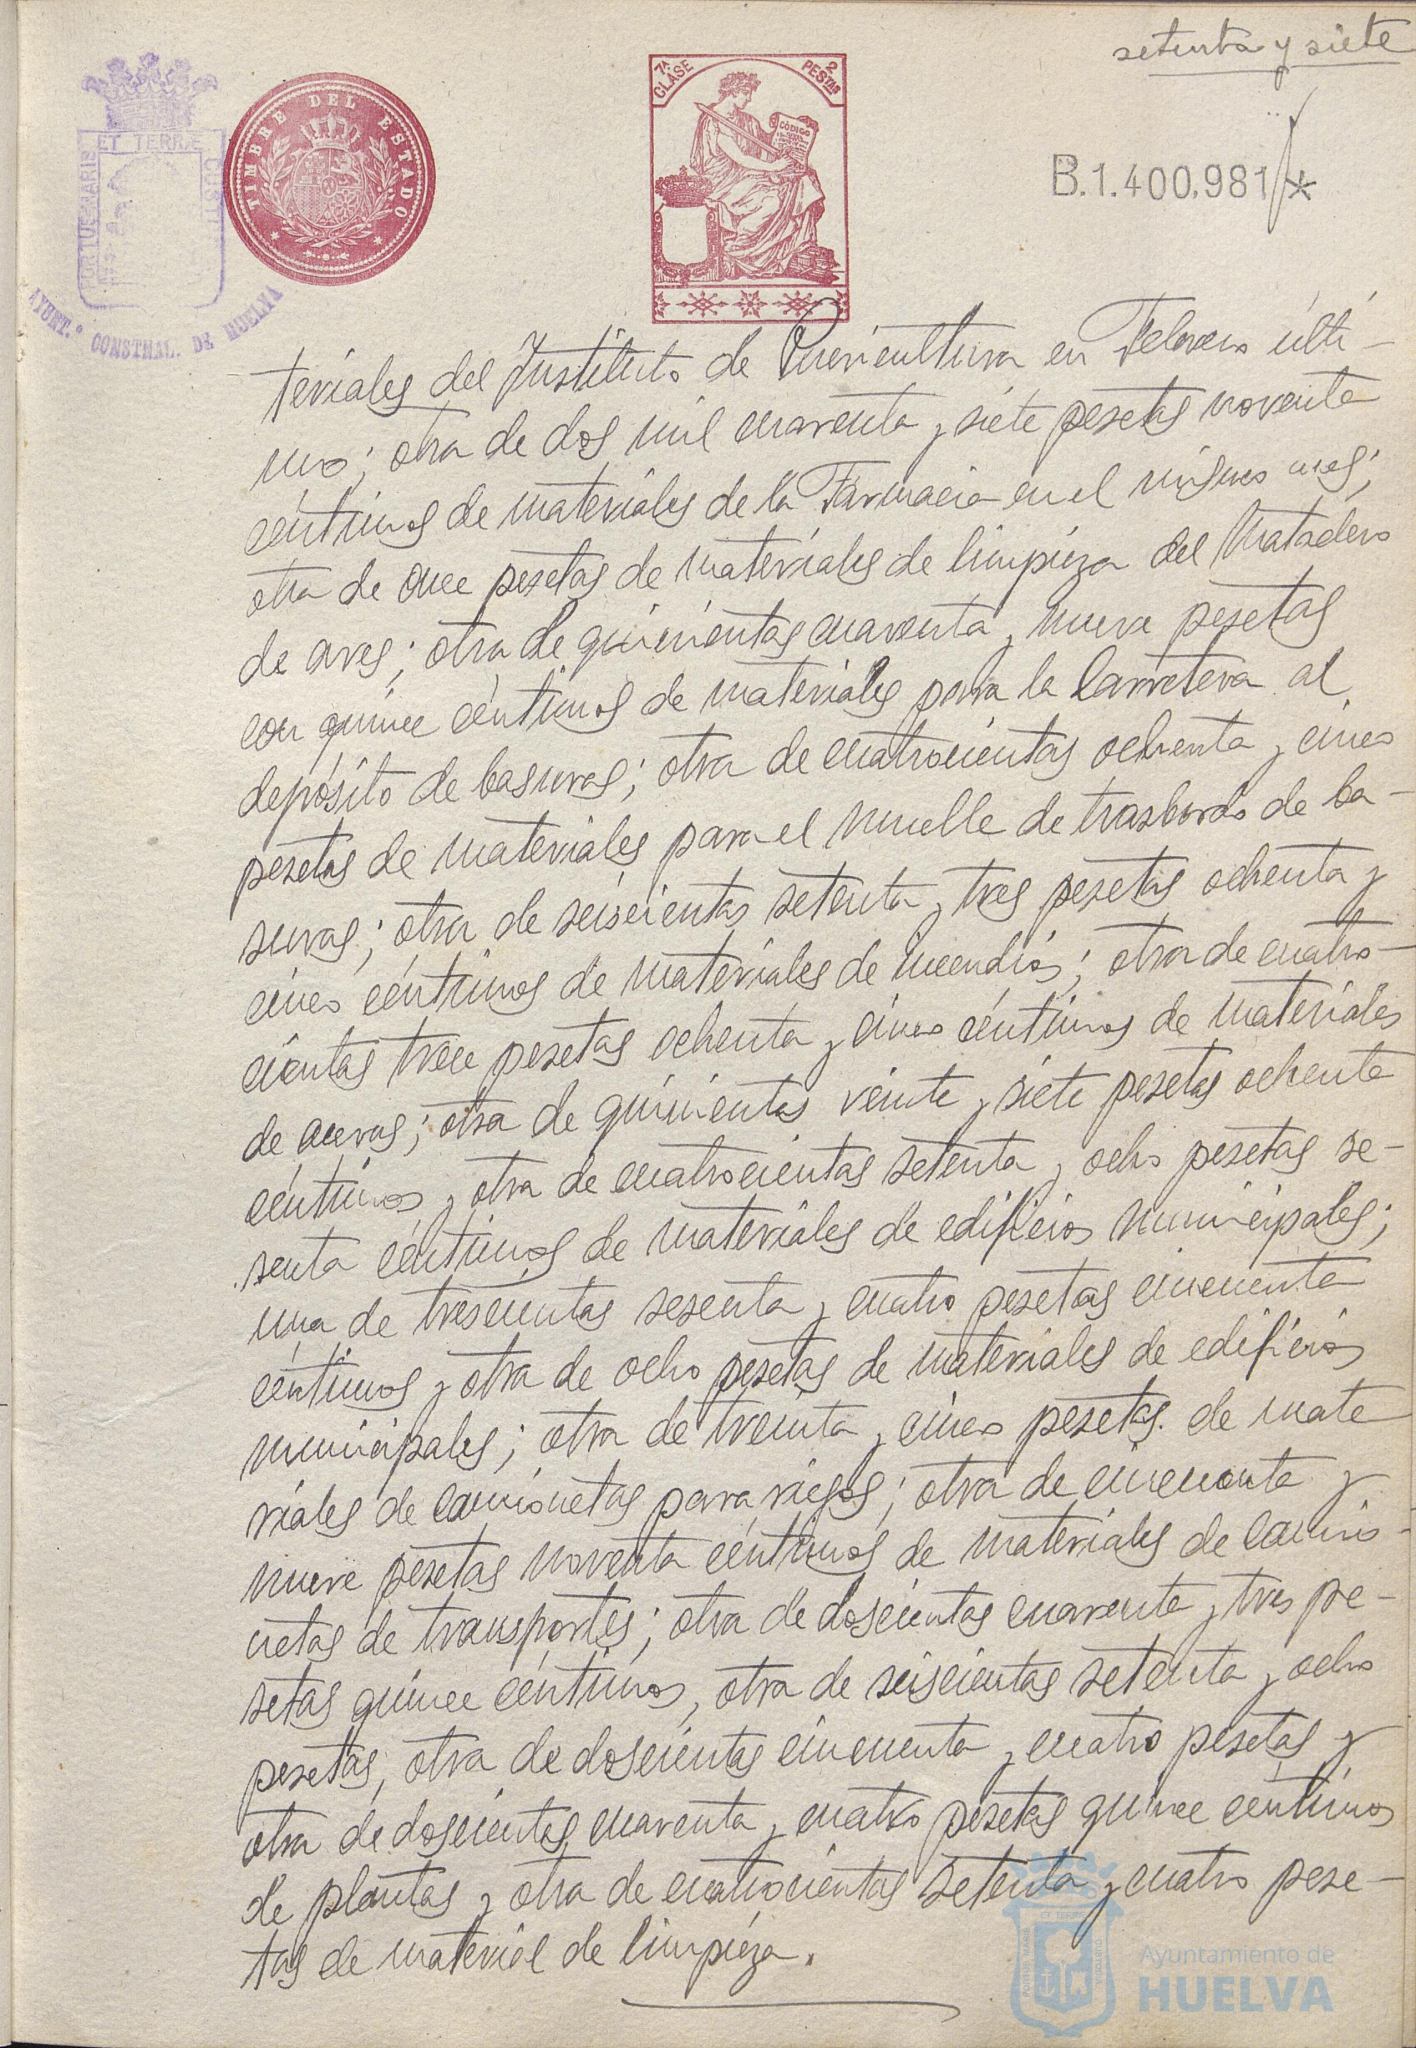 setenta y siete
7ª CLASE
2 PESTAS
CÓDIGO
TIMBRE DEL ESTADO
PORTUS MARIS ET TERRÆ CUSTODIA
AYUNT.º CONSTNAL. DE HUELVA
B.1.400.981 *
teriales del Instituto de Puericultura en Febrero últi-
mo; otra de dos mil cuarenta y siete pesetas noventa
céntimos de materiales de la Farmacia en el mismo mes;
otra de once pesetas de materiales de limpieza del Matadero
de aves; otra de quinientas cuarenta y nueve pesetas
con quince céntimos de materiales para la Carretera al
depósito de basuras; otra de cuatrocientas ochenta y cinco
pesetas de materiales para el muelle de trasbordo de ba-
suras; otra de seiscientas setenta y tres pesetas ochenta y
cinco céntimos de materiales de incendios; otra de cuatro-
cientas trece pesetas ochenta y cinco céntimos de materiales
de aceras; otra de quinientas veinte y siete pesetas ochenta
céntimos y otra de cuatrocientas setenta y ocho pesetas se-
senta céntimos de materiales de edificios municipales;
una de trescientas sesenta y cuatro pesetas cincuenta
céntimos y otra de ocho pesetas de materiales de edificios
municipales; otra de treinta y cinco pesetas de mate
riales de camionetas para riegos; otra de cincuenta y
nueve pesetas noventa céntimos de materiales de camio-
netas de transportes; otra de doscientas cuarenta y tres pe-
setas quince céntimos, otra de seiscientas setenta y ocho
pesetas, otra de doscientas cincuenta y cuatro pesetas y
otra de doscientas cuarenta y cuatro pesetas quince céntimos
de plantas y otra de cuatrocientas setenta y cuatro pese-
tas de material de limpieza.
Ayuntamiento de
HUELVA